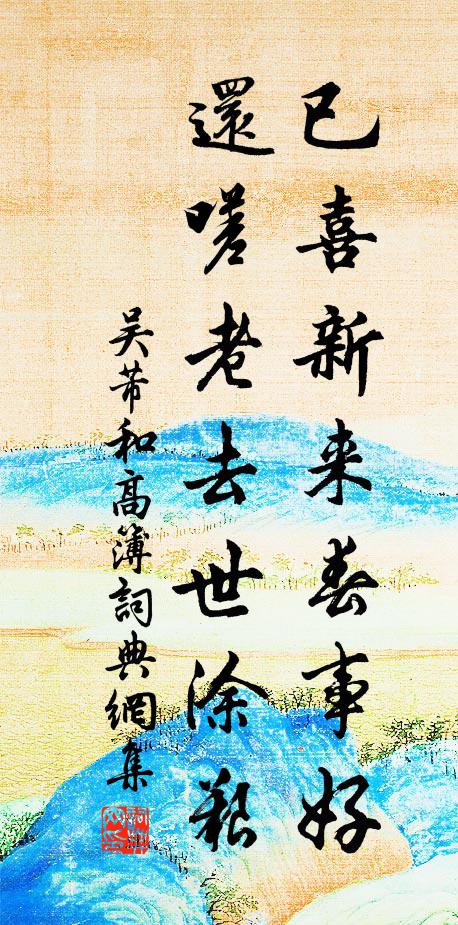 已喜新来春事好
還嗟老去世涂艱
吴芾和高簿詞典網集